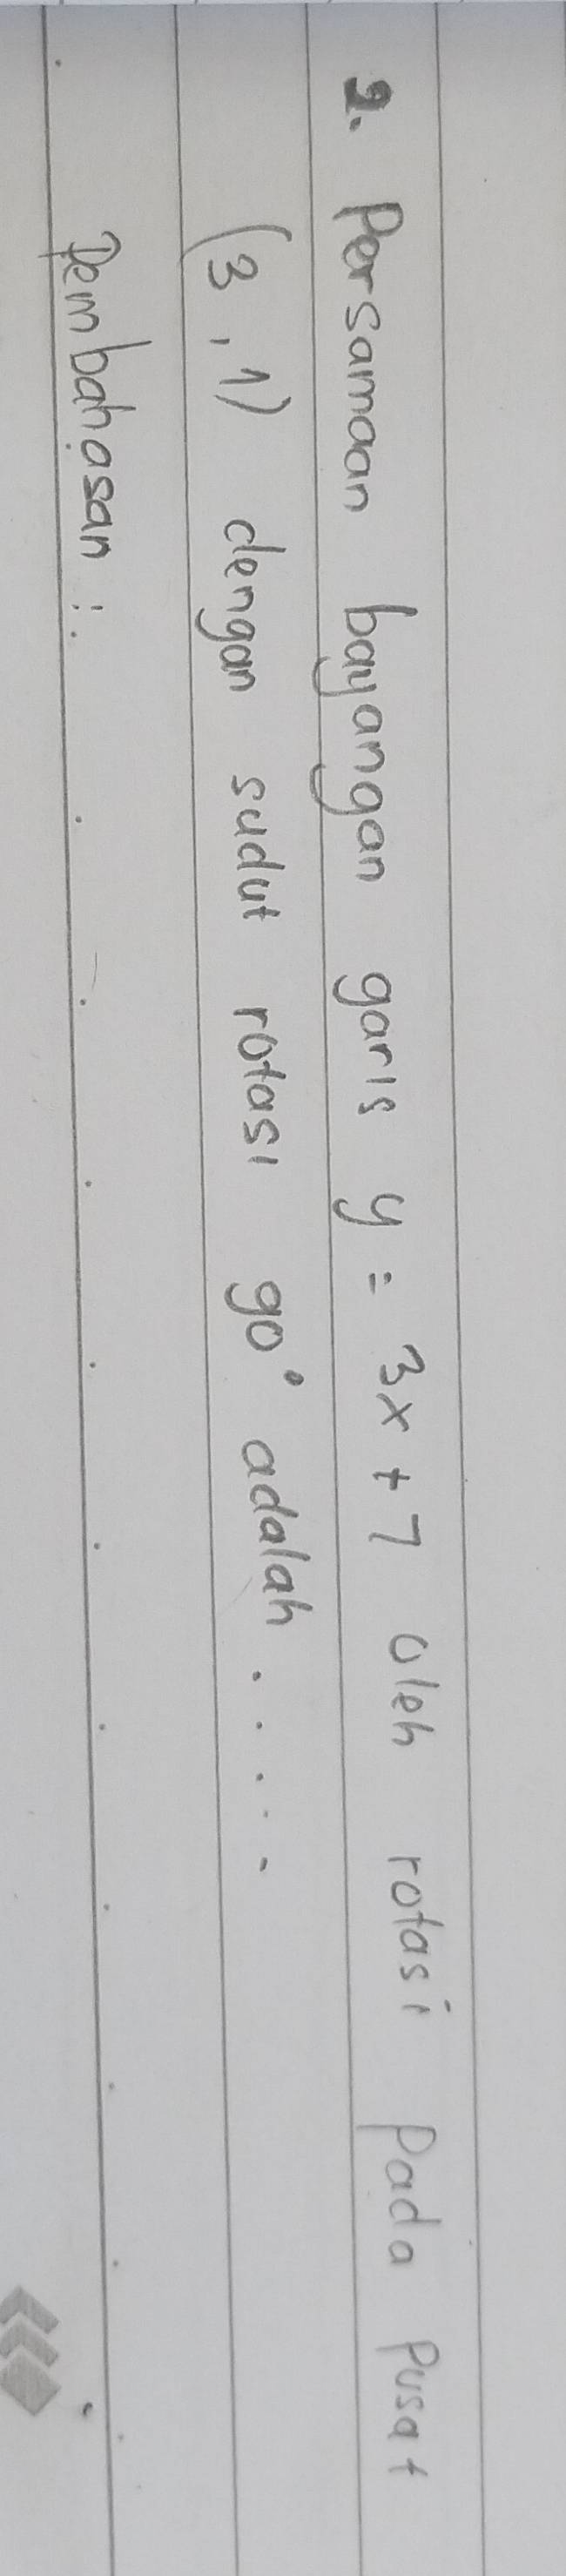 2. Persamaan bayangan garis y = 3x + 7 oleh rotasi pada pusat
(3, 1) dengan sudut rotasi 90° adalah .....
Pembahasan :